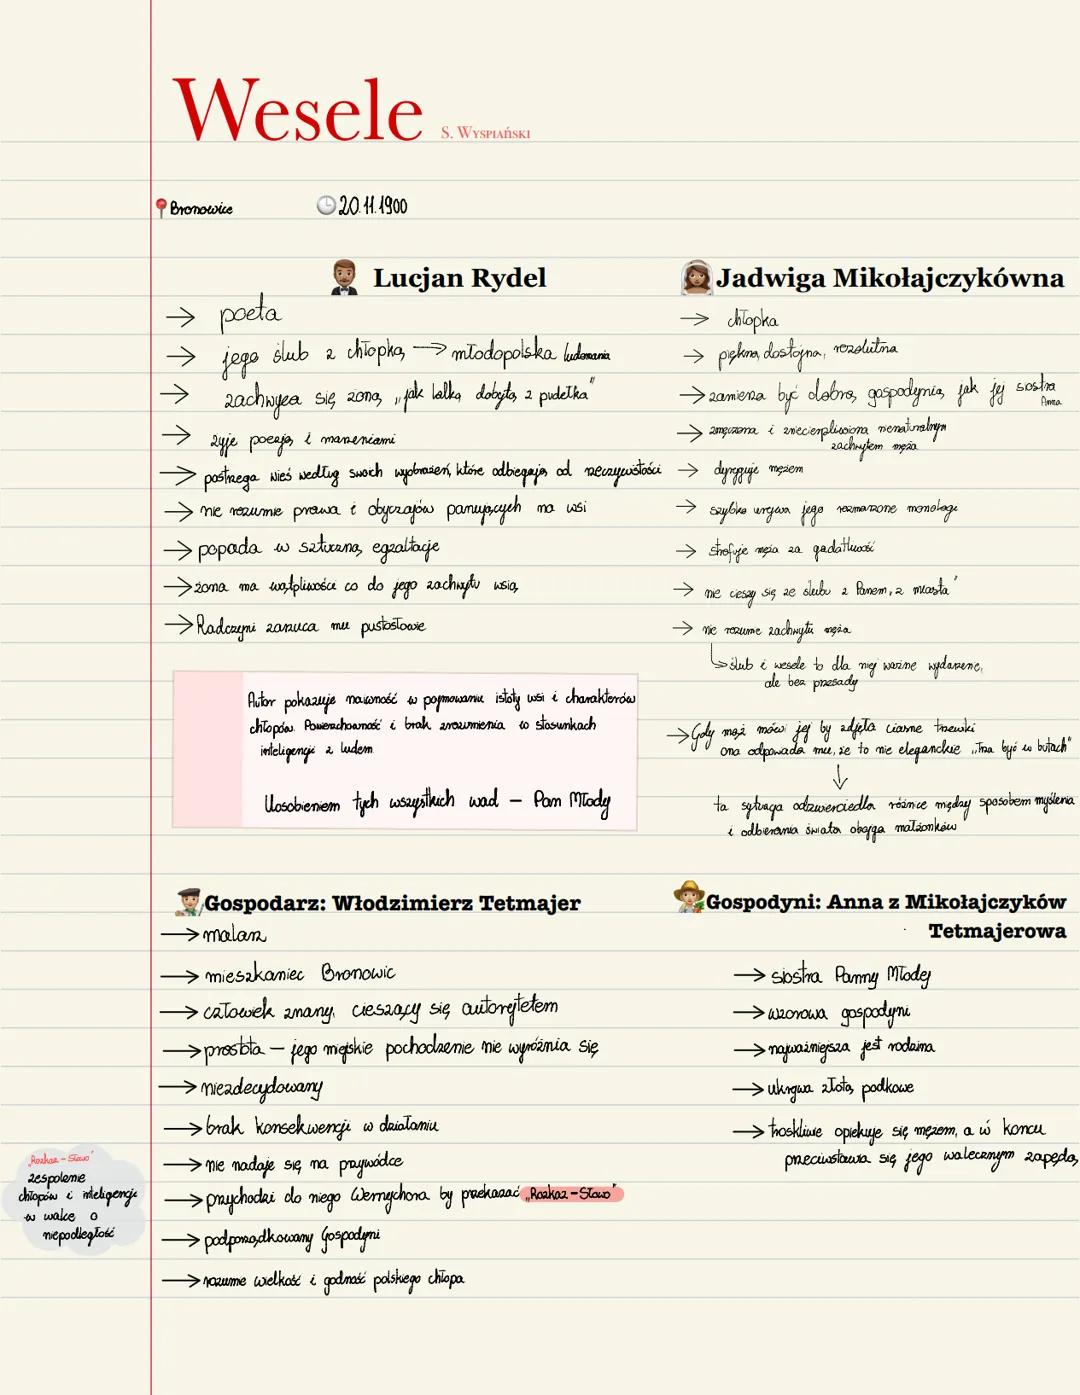 Wesele S. WYSPIAŃSKI
Bronowice 20.11.1900
Lucjan Rydel
→ poeta
→ jego ślub z chłopką → młodopolska ludomania
→ zachwyca się żoną „jak lalką dobytą z pudełka"
→ żyje poezją i marzeniami
→ postrzega wieś według swoich wyobrażeń, które odbiegają od rzeczywistości
→ nie rozumie prawa i obyczajów panujących na wsi
→ popada w sztuczną egzaltację
→ żona ma wątpliwości co do jego zachwytu wsią
→ Radczyni zarzuca mu pustosłowie
Autor pokazuje naiwność w pojmowaniu istoty wsi i charakterów
chłopów. Powierzchowność i brak zrozumienia w stosunkach
inteligencji z ludem
Uosobieniem tych wszystkich wad – Pan Młody
Jadwiga Mikołajczykówna
→ chłopka
→ piękna, dostojna, rezolutna
→ zamierza być dobrą gospodynią, jak jej siostra
Anna
→ zmęczona i zniecierpliwiona nienaturalnym
zachwytem męża
→ dyryguje mężem
→ szybko urywa jego rozmarzone monologi
→ strofuje męża za gadatliwość
→ nie cieszy się ze ślubu z Panem „z miasta"
→ nie rozumie zachwytu męża
ślub i wesele to dla niej ważne wydarzenie,
ale bez przesady
→ Gdy mąż mówi jej by zdjęła ciasne trzewiki
ona odpowiada mu, że to nie eleganckie „Trza być w butach"
↓
ta sytuacja odzwierciedla różnice między sposobem myślenia
i odbierania świata obojga małżonków
Gospodarz: Włodzimierz Tetmajer
→ malarz
→ mieszkaniec Bronowic
→ człowiek znany, cieszący się autorytetem
→ prostota – jego miejskie pochodzenie nie wyróżnia się
→ niezdecydowany
→ brak konsekwencji w działaniu
→ nie nadaje się na przywódcę
→ przychodzi do niego Wernyhora by przekazać „Rozkaz – Słowo"
→ podporządkowany Gospodyni
→ rozumie wielkość i godność polskiego chłopa
„Rozkaz – Słowo"
zespolenie
chłopów i inteligencji
w walce o
niepodległość
Gospodyni: Anna z Mikołajczyków
Tetmajerowa
→ siostra Panny Młodej
→ wzorowa gospodyni
→ najważniejsza jest rodzina
→ ukrywa złotą podkowę
→ troskliwie opiekuje się mężem, a w końcu
przeciwstawia się jego walecznym zapędą